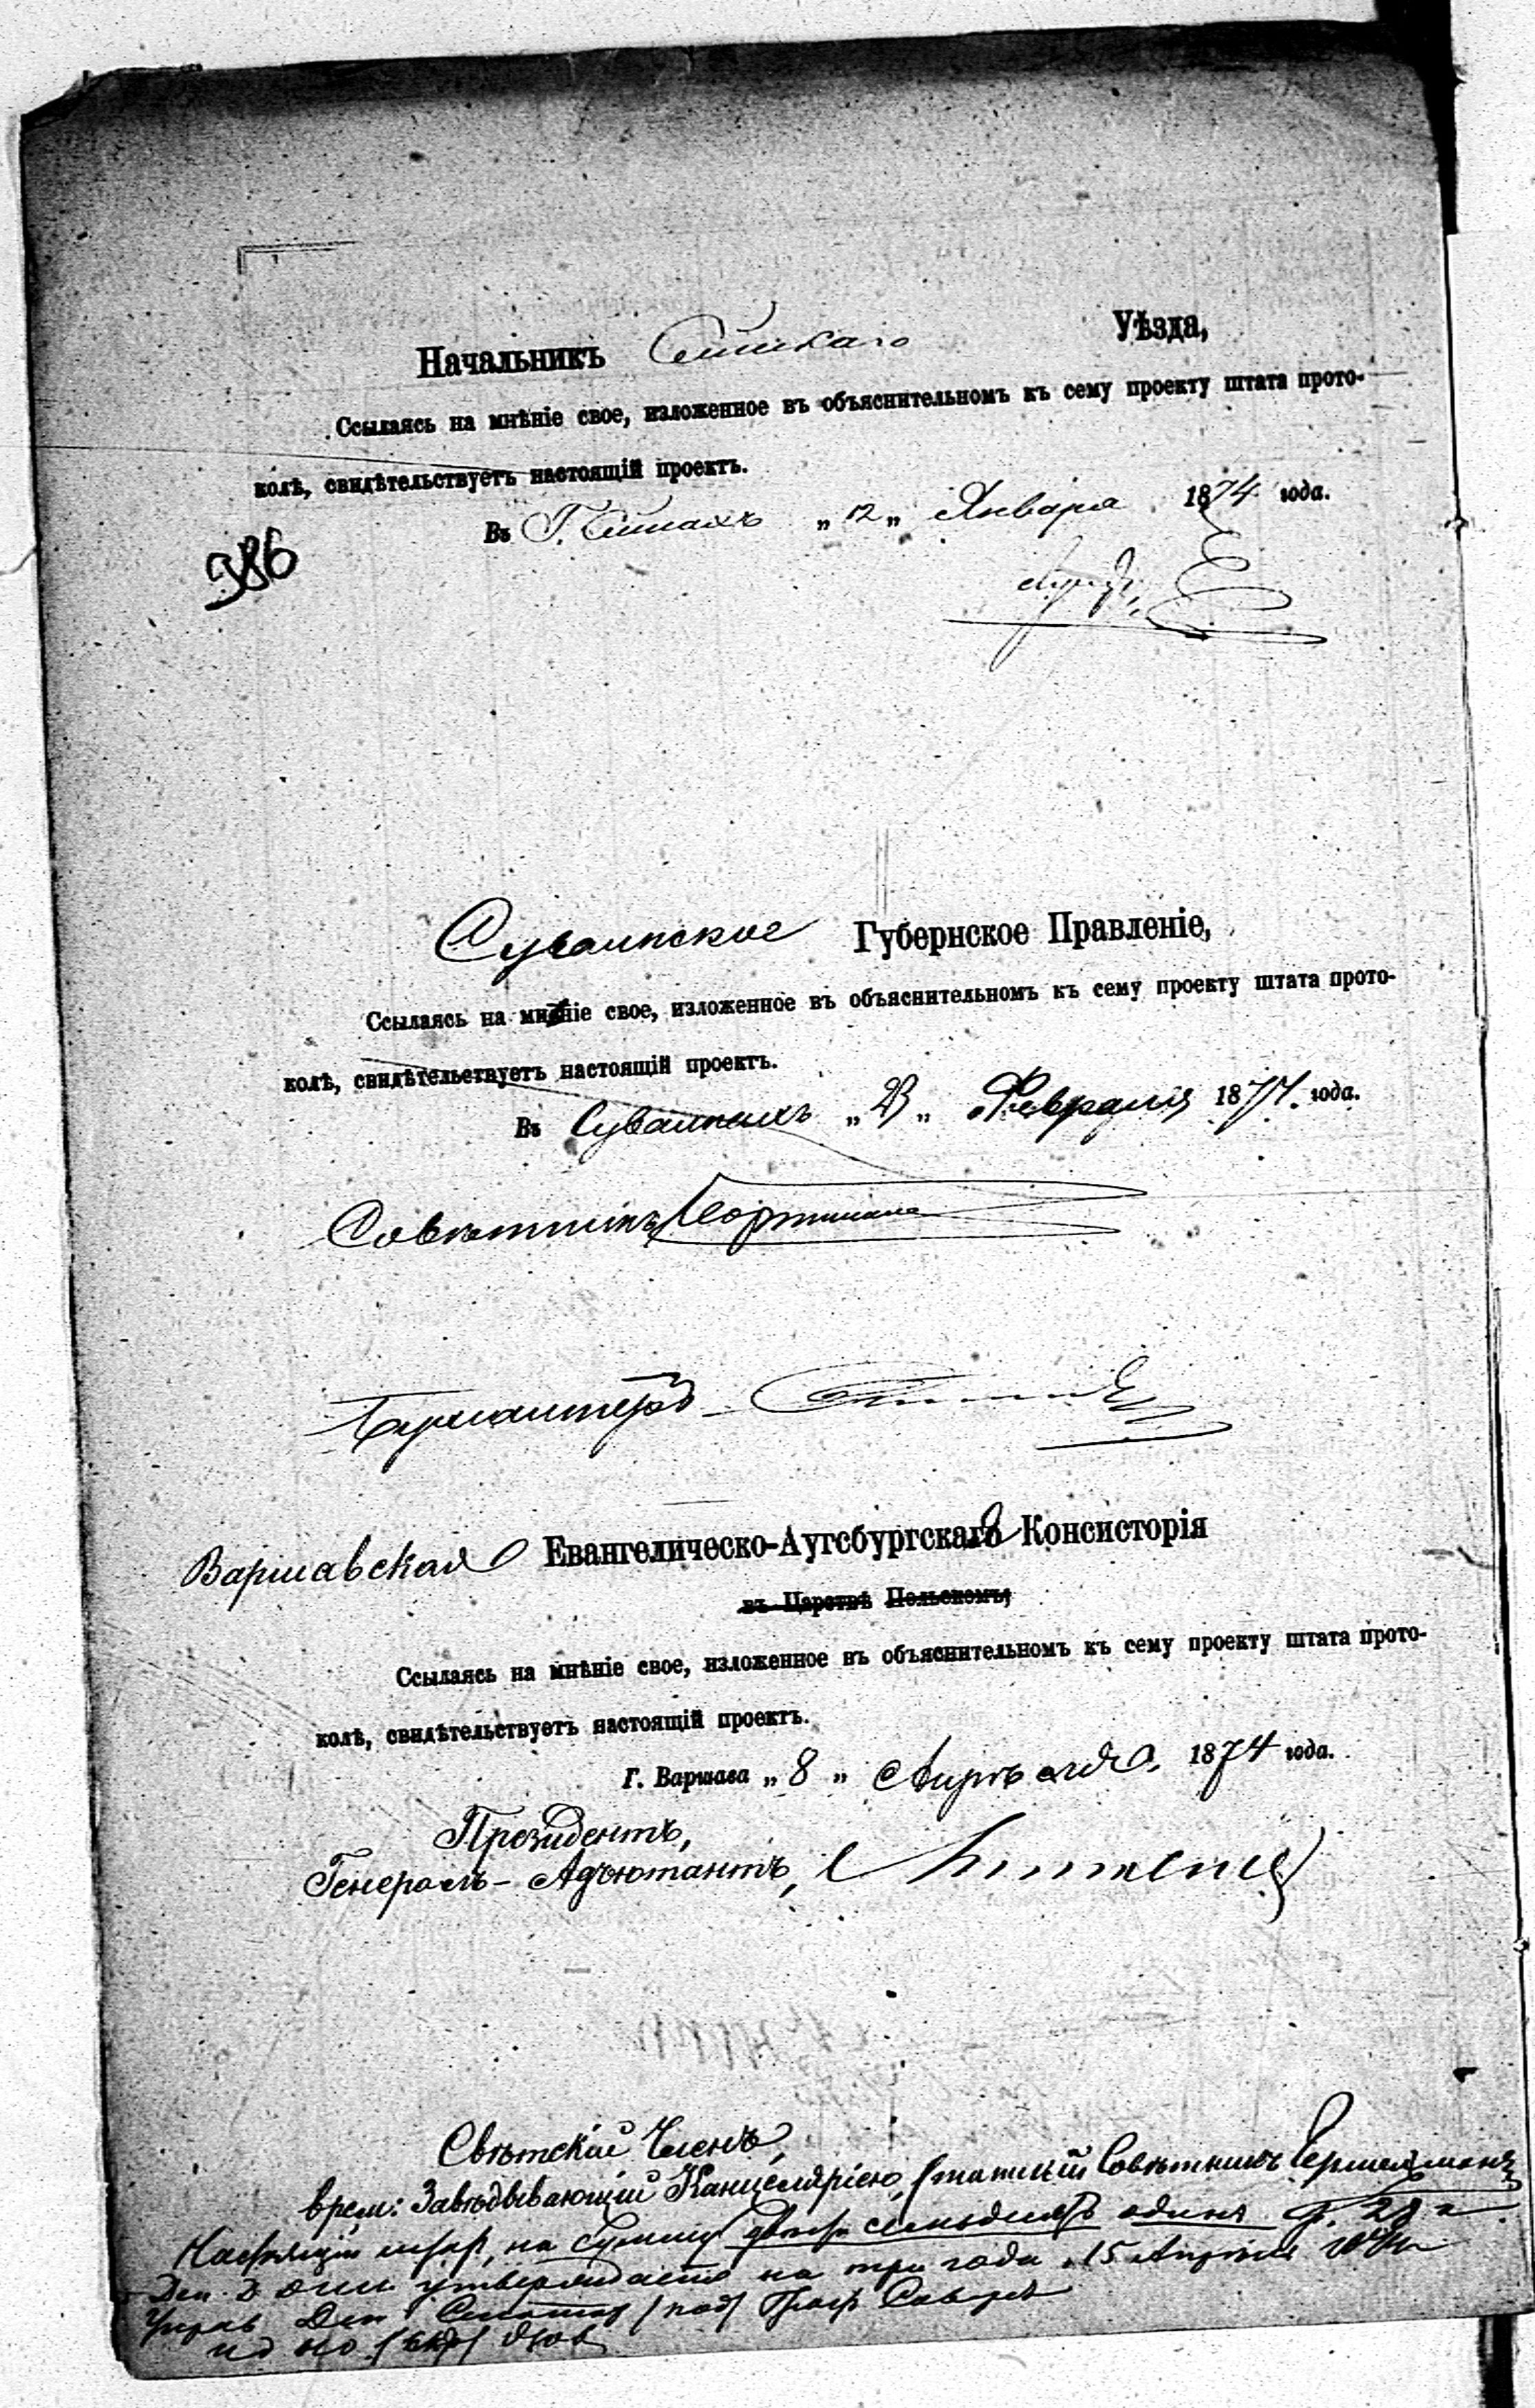 Начальникъ Сейнскаго Уѣзда,
Ссылаясь на мнѣніе свое, изложенное въ объяснительномъ къ сему проекту штата прото-
колѣ, свидѣтельствуетъ настоящій проектъ.
Въ Г. Сейнахъ „12„ Января 1874 года.
386
Сувалкское Губернское Правленіе,
Ссылаясь на мнѣніе свое, изложенное въ объяснительномъ къ сему проекту штата прото-
колѣ, свидѣтельствуетъ настоящій проектъ.
Въ Сувалкахъ „23„ Февраля 1874 года.
Совѣтникъ
Бухгалтеръ
Варшавская Евангелическо-Аугсбургская Консисторія
въ Царствѣ Польскомъ,
Ссылаясь на мнѣніе свое, изложенное въ объяснительномъ къ сему проекту штата прото-
колѣ, свидѣтельствуетъ настоящій проектъ.
Г. Варшава „8„ Апрѣля 1874 года.
Президентъ,
Генералъ-Адъютантъ,
Свѣтскій Членъ,
врем: Завѣдывающій Канцеляріею, Статскій Совѣтникъ
на сумму семьдесятъ одинъ р. 28 к.
утверждается на три года 15 Апрѣля
Управ Деп Сенаторъ /под/ Граф